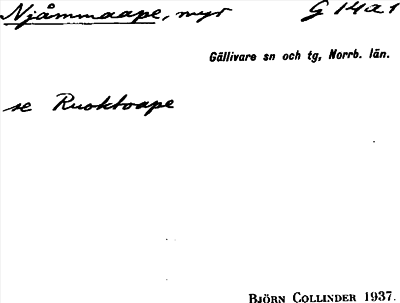 Njåmmaape, myr G 14a1
Gällivare sn och tg, Norrb. län.
se Ruoktoape
BJÖRN COLLINDER 1937.